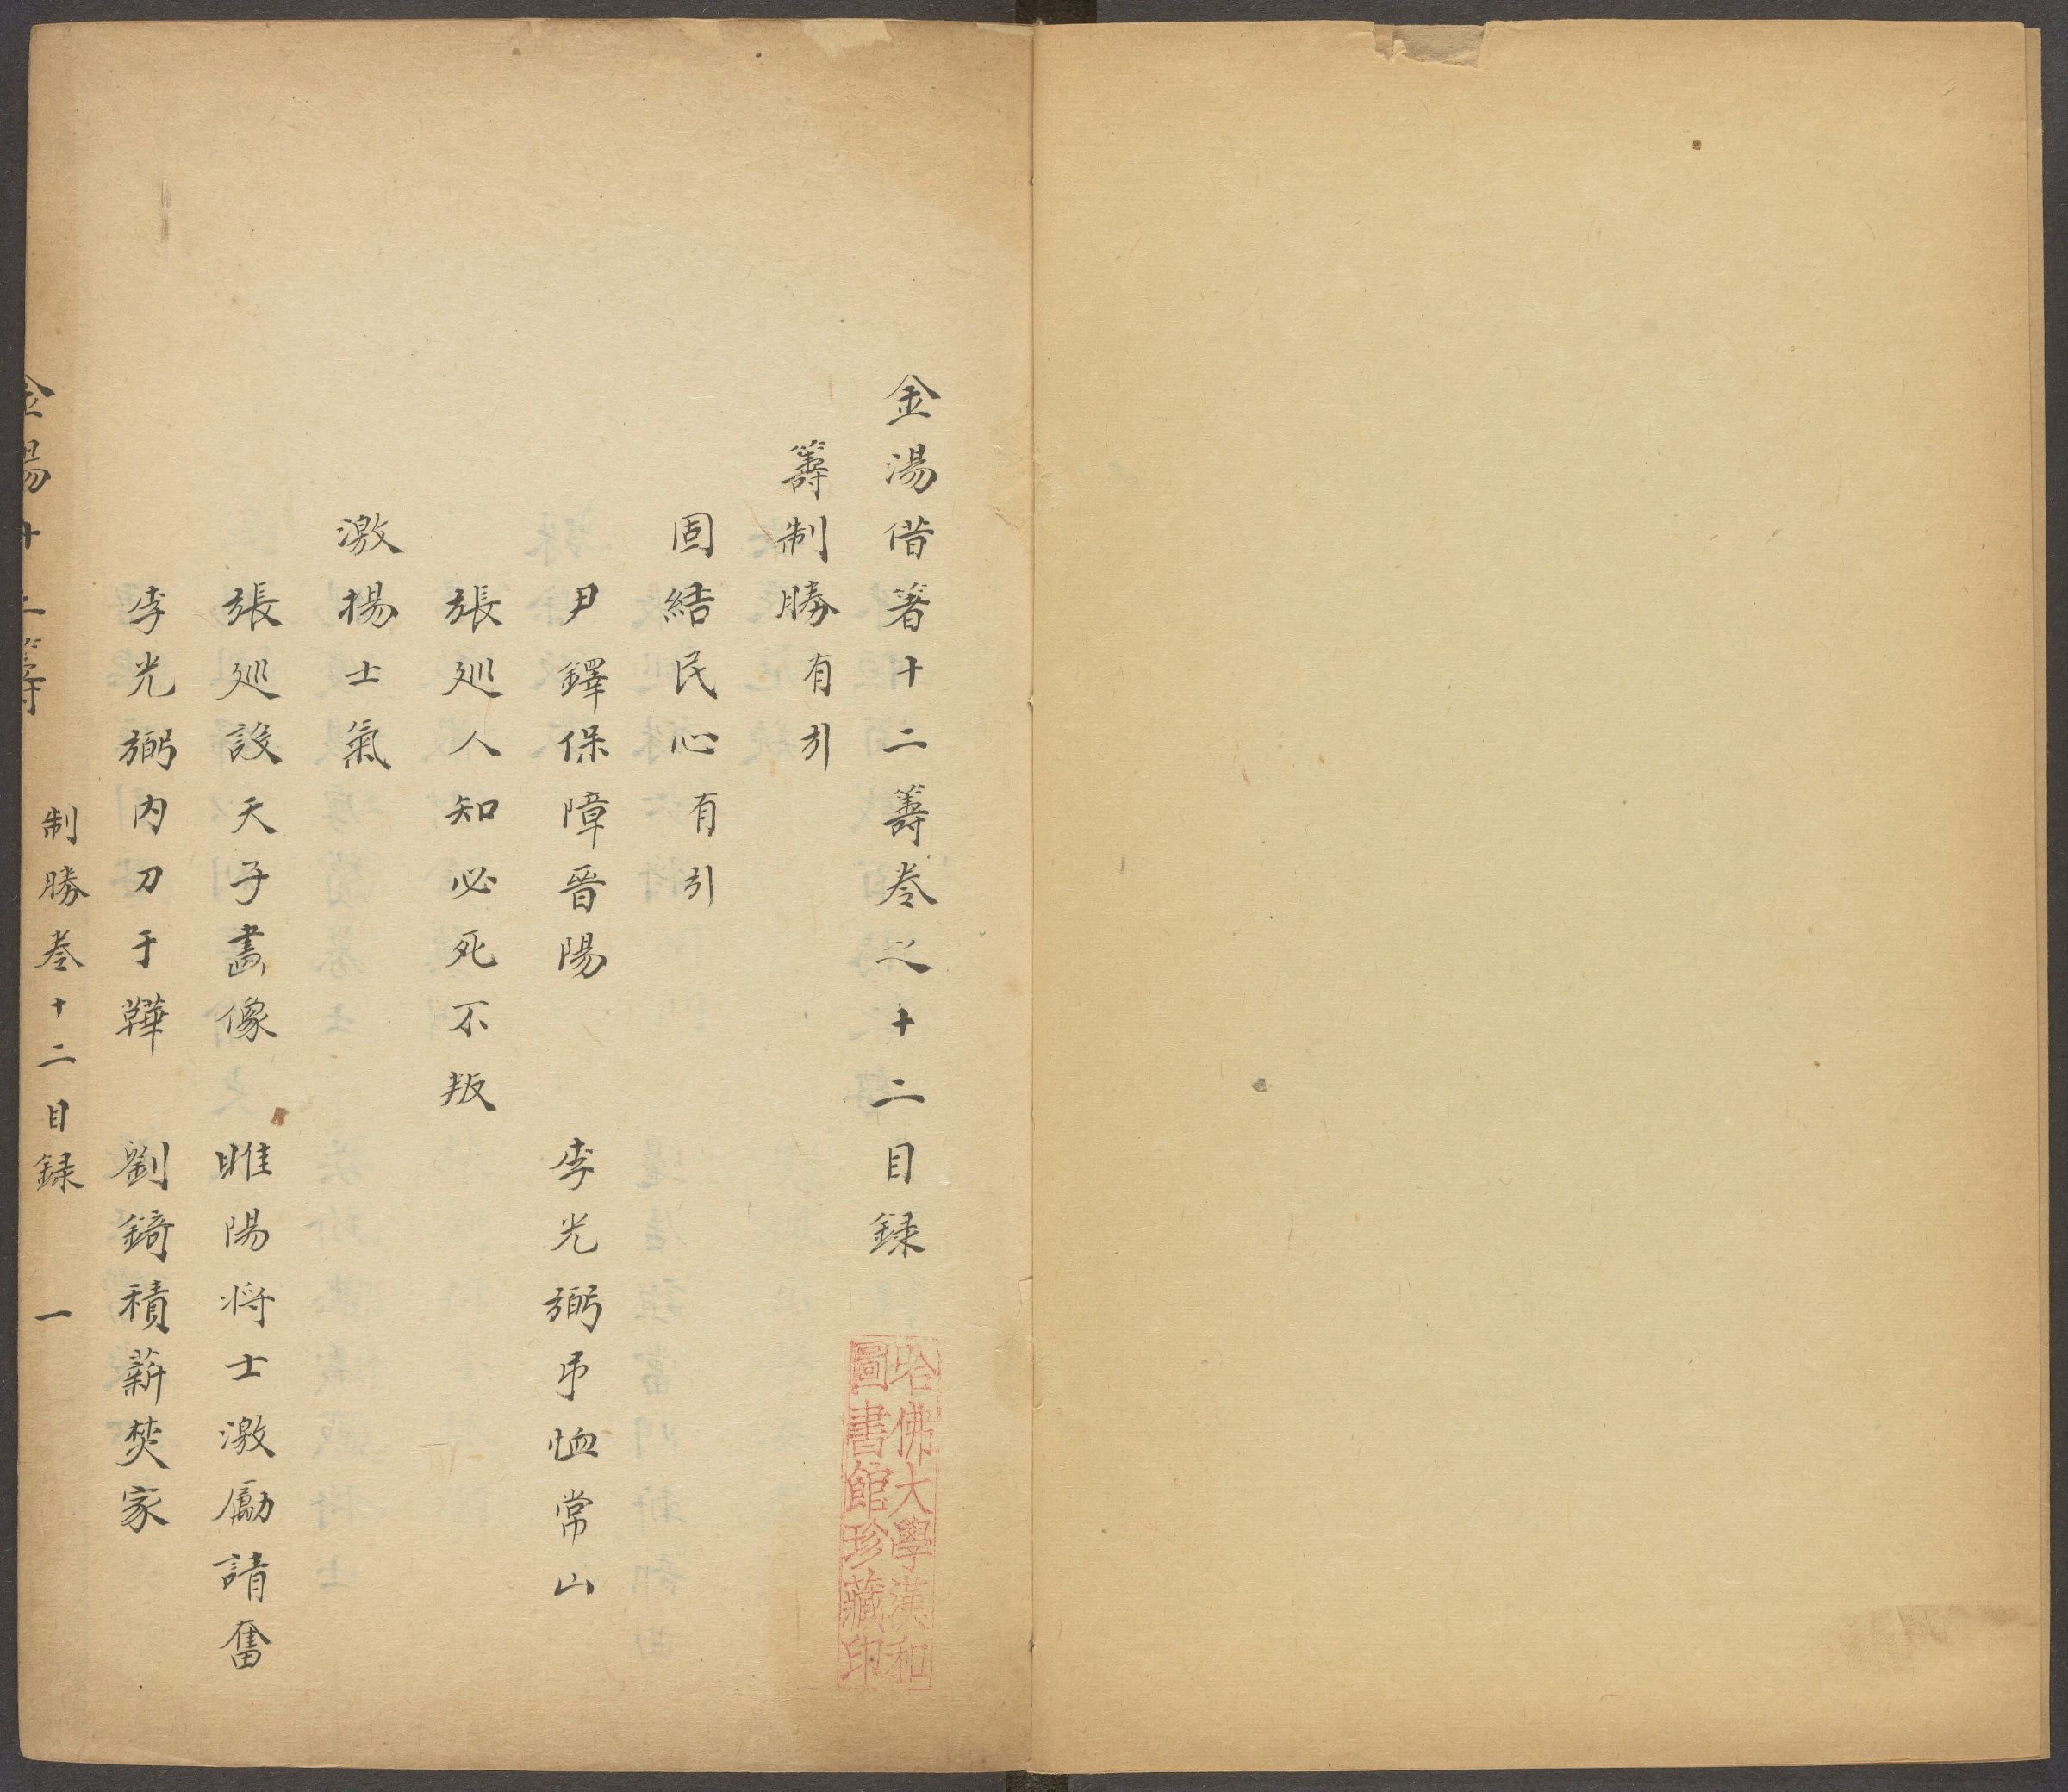 金湯借箸十二籌卷之十二目録
籌制勝有引
固結民心有引
尹鐸保障晉陽　李光弼弔恤常山
張廵人知必死不叛
激揚士氣
張廵設天子畵像　睢陽将士激勵請奮
李光弼内刀于鞾　劉錡積薪焚家
金湯十二籌　制勝卷十二目録　一
哈佛大學漢和
圖書館珍藏印